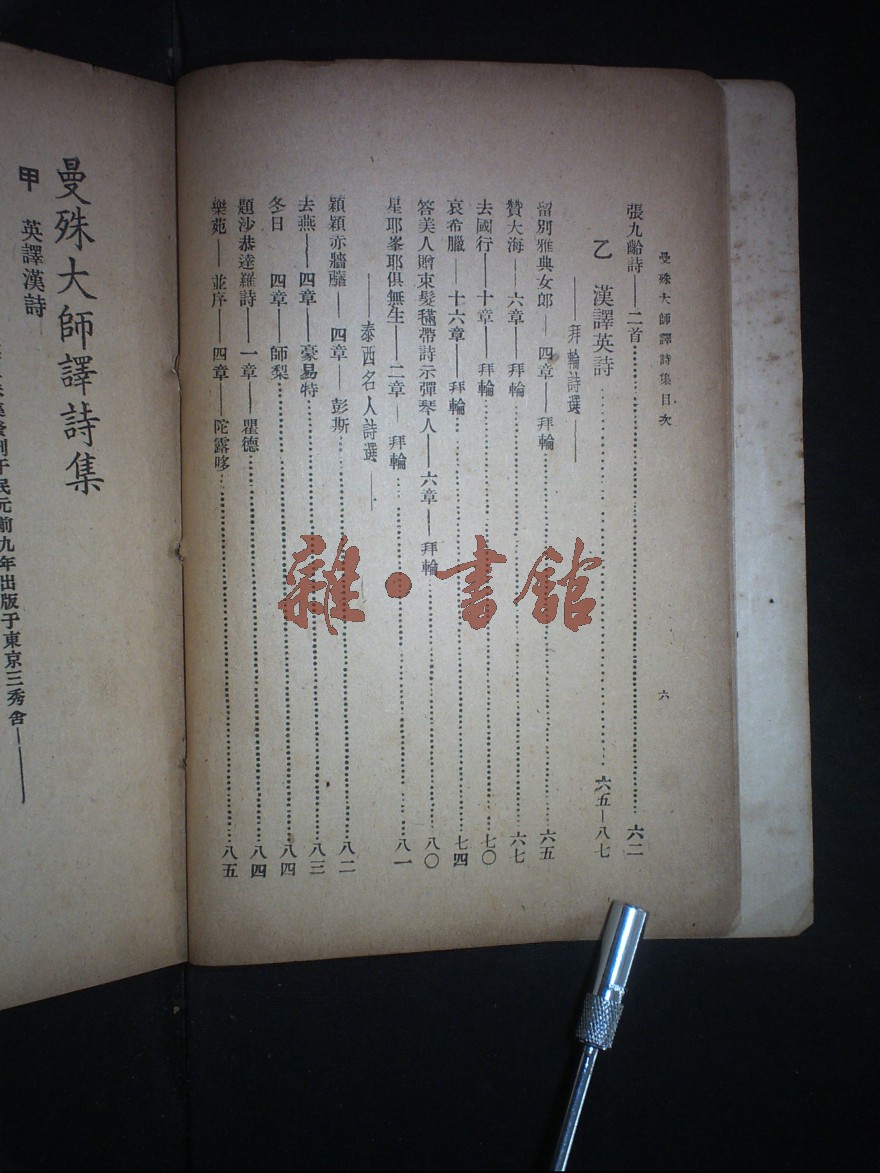 曼殊大師譯詩集目次
六
張九齡詩——二首 六二
乙 漢譯英詩 六五—八七
——拜輪詩選——
留別雅典女郎——四章——拜輪 六五
贊大海——六章——拜輪 六七
去國行——十章——拜輪 七〇
哀希臘——十六章——拜輪 七四
答美人贈束髮𣯶帶詩示彈琴人——六章——拜輪 八〇
星耶峯耶俱無生——二章——拜輪 八一
——泰西名人詩選——
熲熲亦牆靡——四章——彭斯 八二
去燕——四章——豪易特 八三
冬日 四章——師梨 八四
題沙恭達羅詩——一章——瞿德 八四
樂苑——並序——四章——陀露哆 八五
曼殊大師譯詩集
甲 英譯漢詩
刊于民元前九年出版于東京三秀舍——
雜·書館